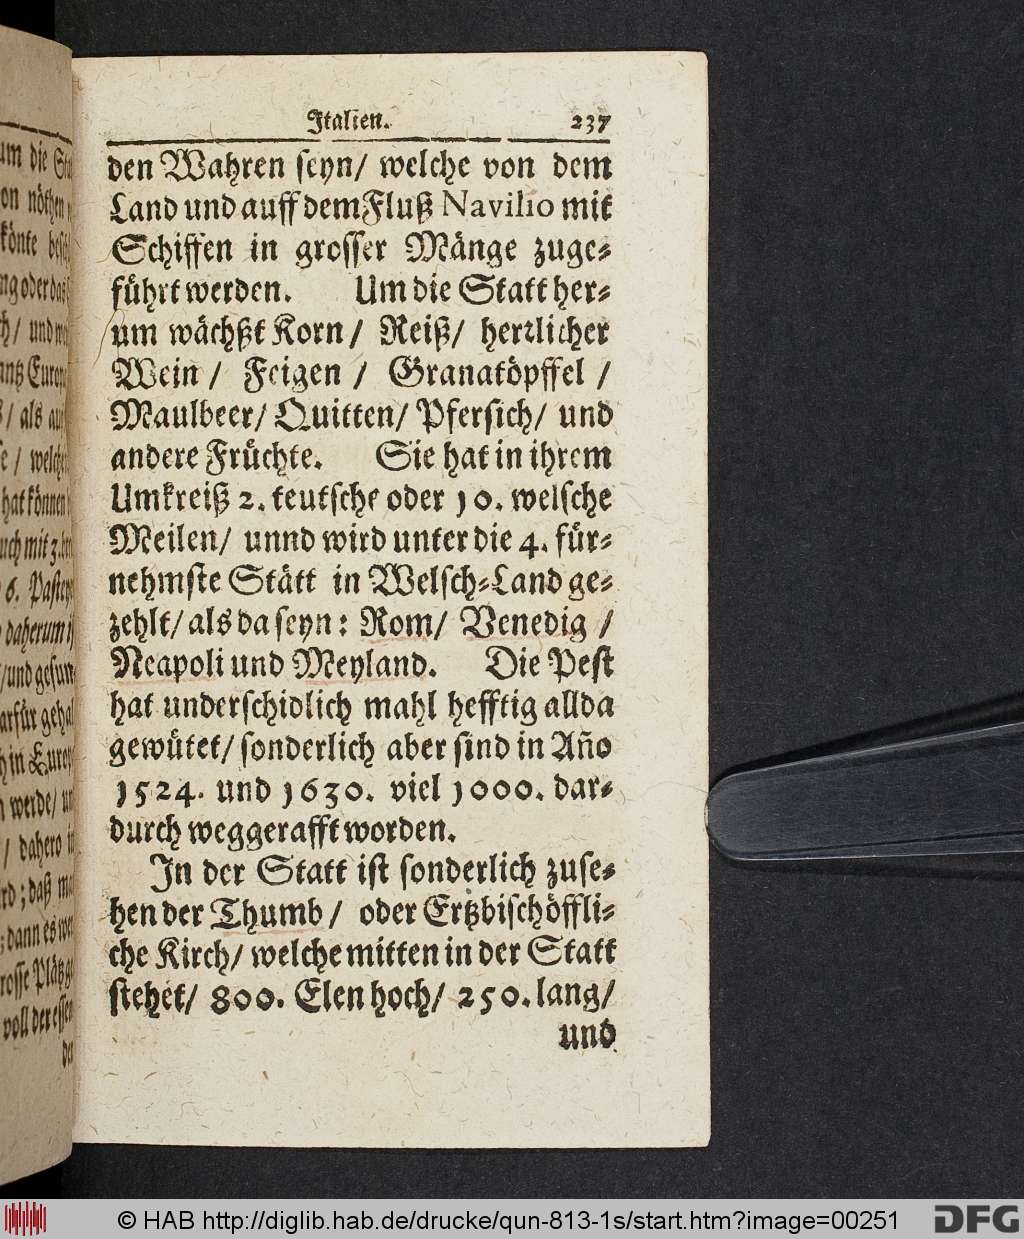 Italien. 237
den Wahren seyn/ welche von dem
Land und auff dem Fluß Navilio mit
Schiffen in grosser Mänge zuge-
führt werden. Um die Statt her-
um wächßt Korn/ Reiß/ herrlicher
Wein / Feigen / Granatöpffel /
Maulbeer/ Quitten/ Pfersich/ und
andere Früchte. Sie hat in ihrem
Umkreiß 2. teutsche oder 10. welsche
Meilen/ unnd wird unter die 4. für-
nehmste Stätt in Welsch-Land ge-
zehlt/ als da seyn: Rom/ Venedig /
Neapoli und Meyland. Die Pest
hat underschidlich mahl hefftig allda
gewütet/ sonderlich aber sind in Año
1524. und 1630. viel 1000. dar-
durch weggerafft worden.
In der Statt ist sonderlich zuse-
hen der Thumb / oder Ertzbischöffli-
che Kirch/ welche mitten in der Statt
stehet/ 800. Elen hoch/ 250. lang/
und
© HAB http://diglib.hab.de/drucke/qun-813-1s/start.htm?image=00251
DFG